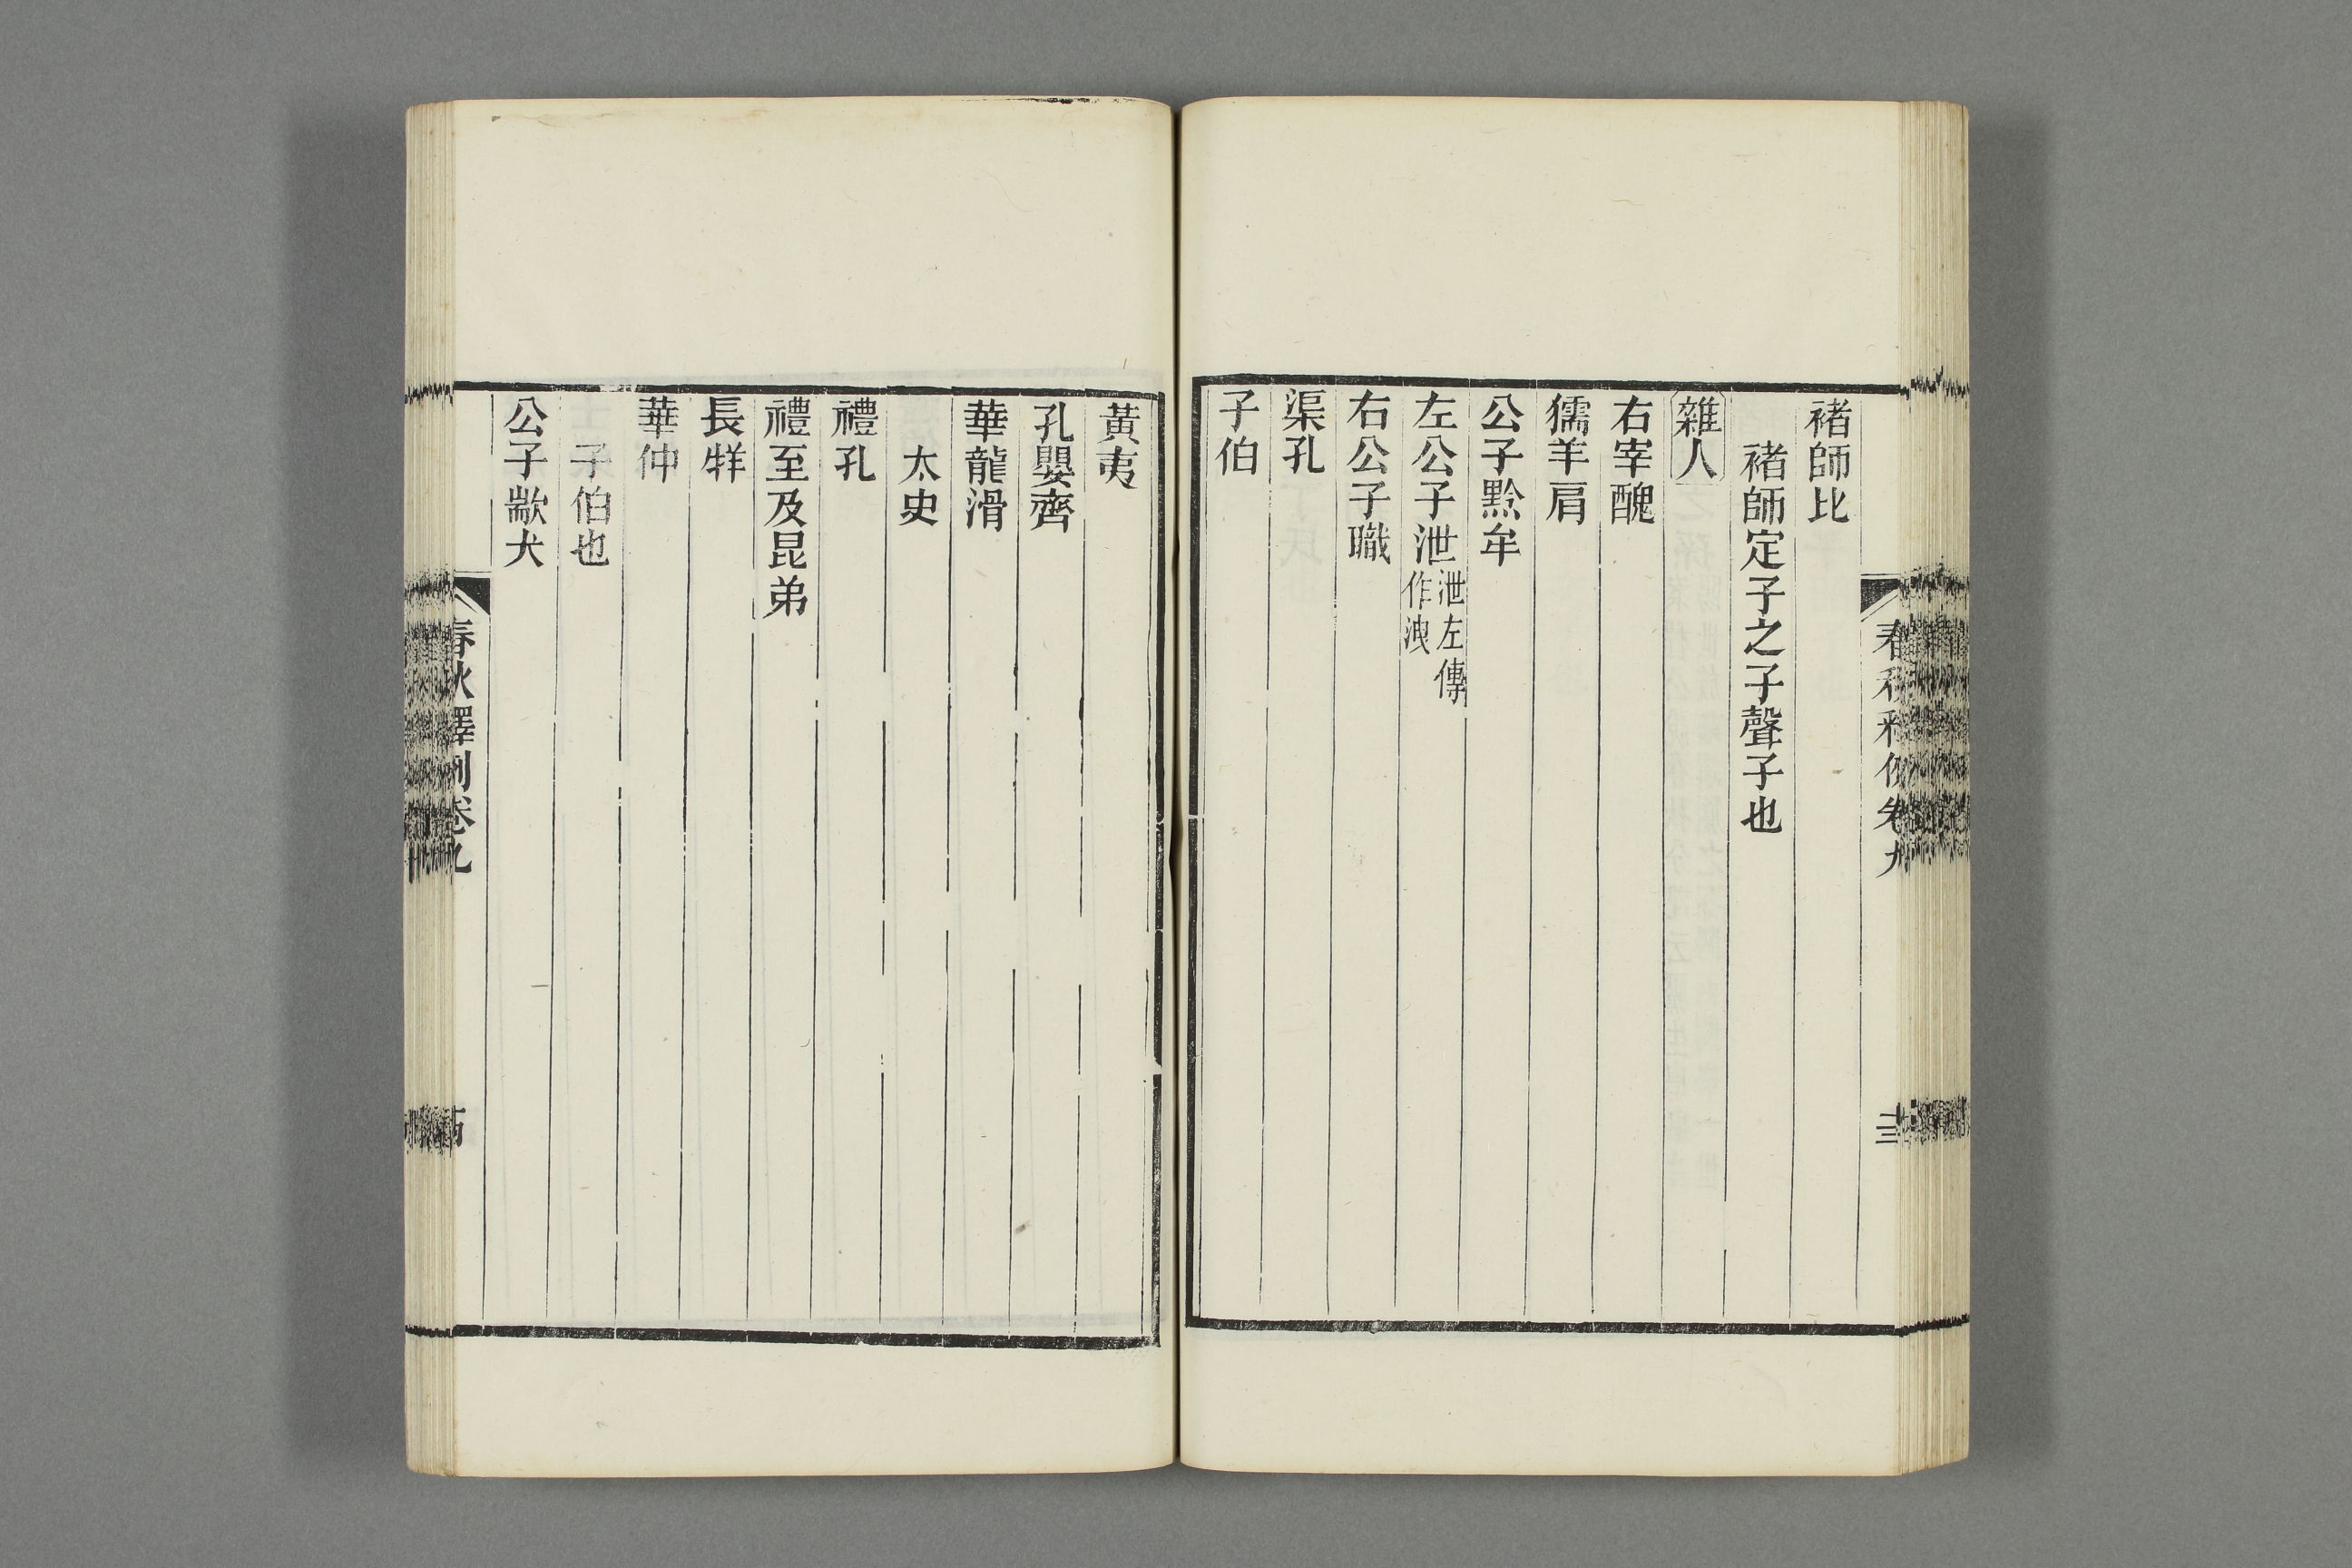 春秋釋例卷九
十三
褚師比
褚師定子之子聲子也
雜人
右宰醜
獳羊肩
公子黔牟
左公子泄泄左傳作洩
右公子職
渠孔
子伯
黃夷
孔嬰齊
華龍滑
太史
禮孔
禮至及昆弟
長牂
華仲
子伯也
公子歂犬
春秋釋例卷九